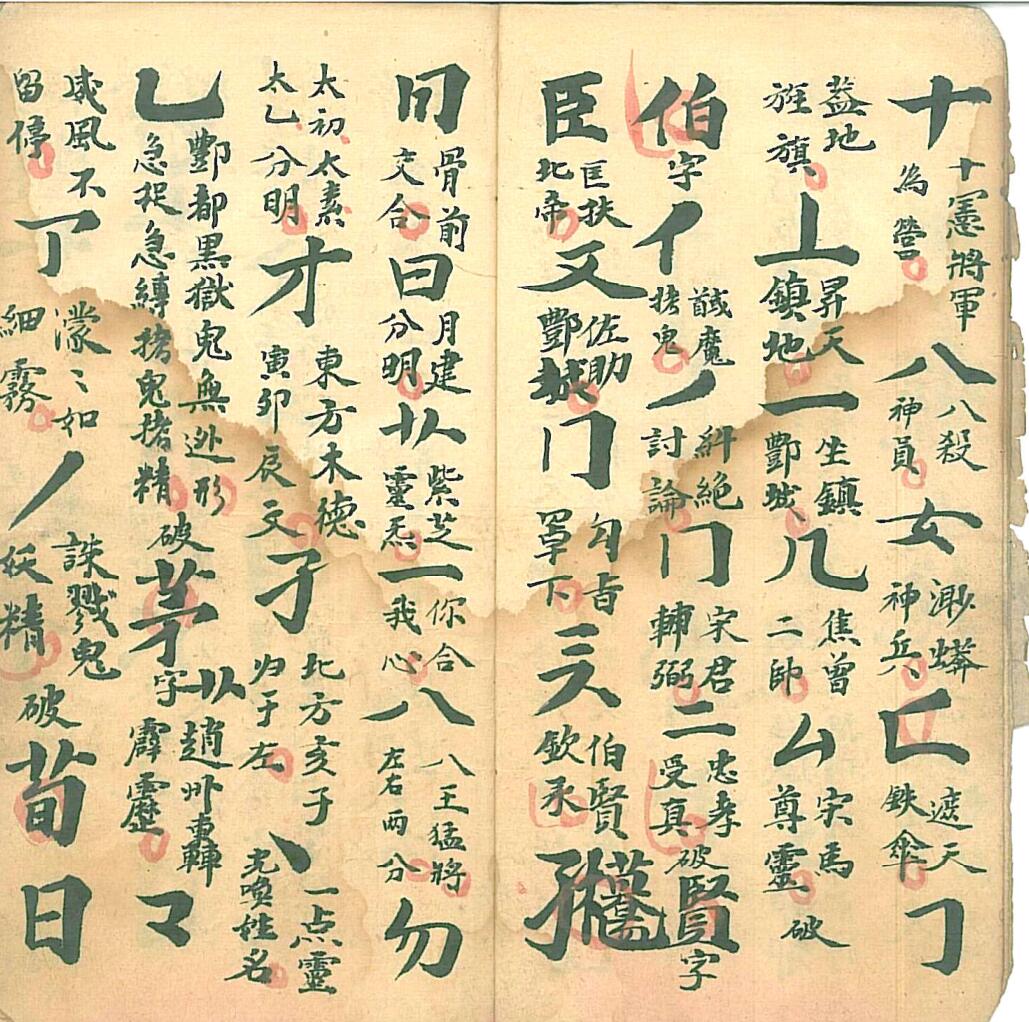 十 十憲將軍 為營 八 八殺 神員 女 渺蟒 神兵 匚 遮天 鉄傘 𠃌
蓋地 旌旗 丄 昇天 鎮地 一 坐鎮 酆城 几 焦曾 二帥 厶 宋馬 尊靈 破
伯字 亻 馘魔 捉鬼 丿 糾絕 討論 冂 宋君 輔弼 二 忠孝 受真 破賢字
臣 匡扶 北帝 又 佐助 酆城 冂 勾旨 罩下 伯賢 欽承
冃 骨前 交合 曰 月建 分明 以 紫芝 靈炁 一 你合 我心 八 八王猛將 左右兩分 勿
太初太素 太乙分明 才 東方木德 寅卯辰文 孑 北方亥子 归于左 丶 一点靈 光喚姓名
乚 酆都黑獄鬼無逃形 急捉急縛捉鬼捉精 破茅字 以 趙州車轉 霹靂 龴
威風不 留停 丁 濛〻如 細霧 丿 誅戮鬼 妖精 破荀 日